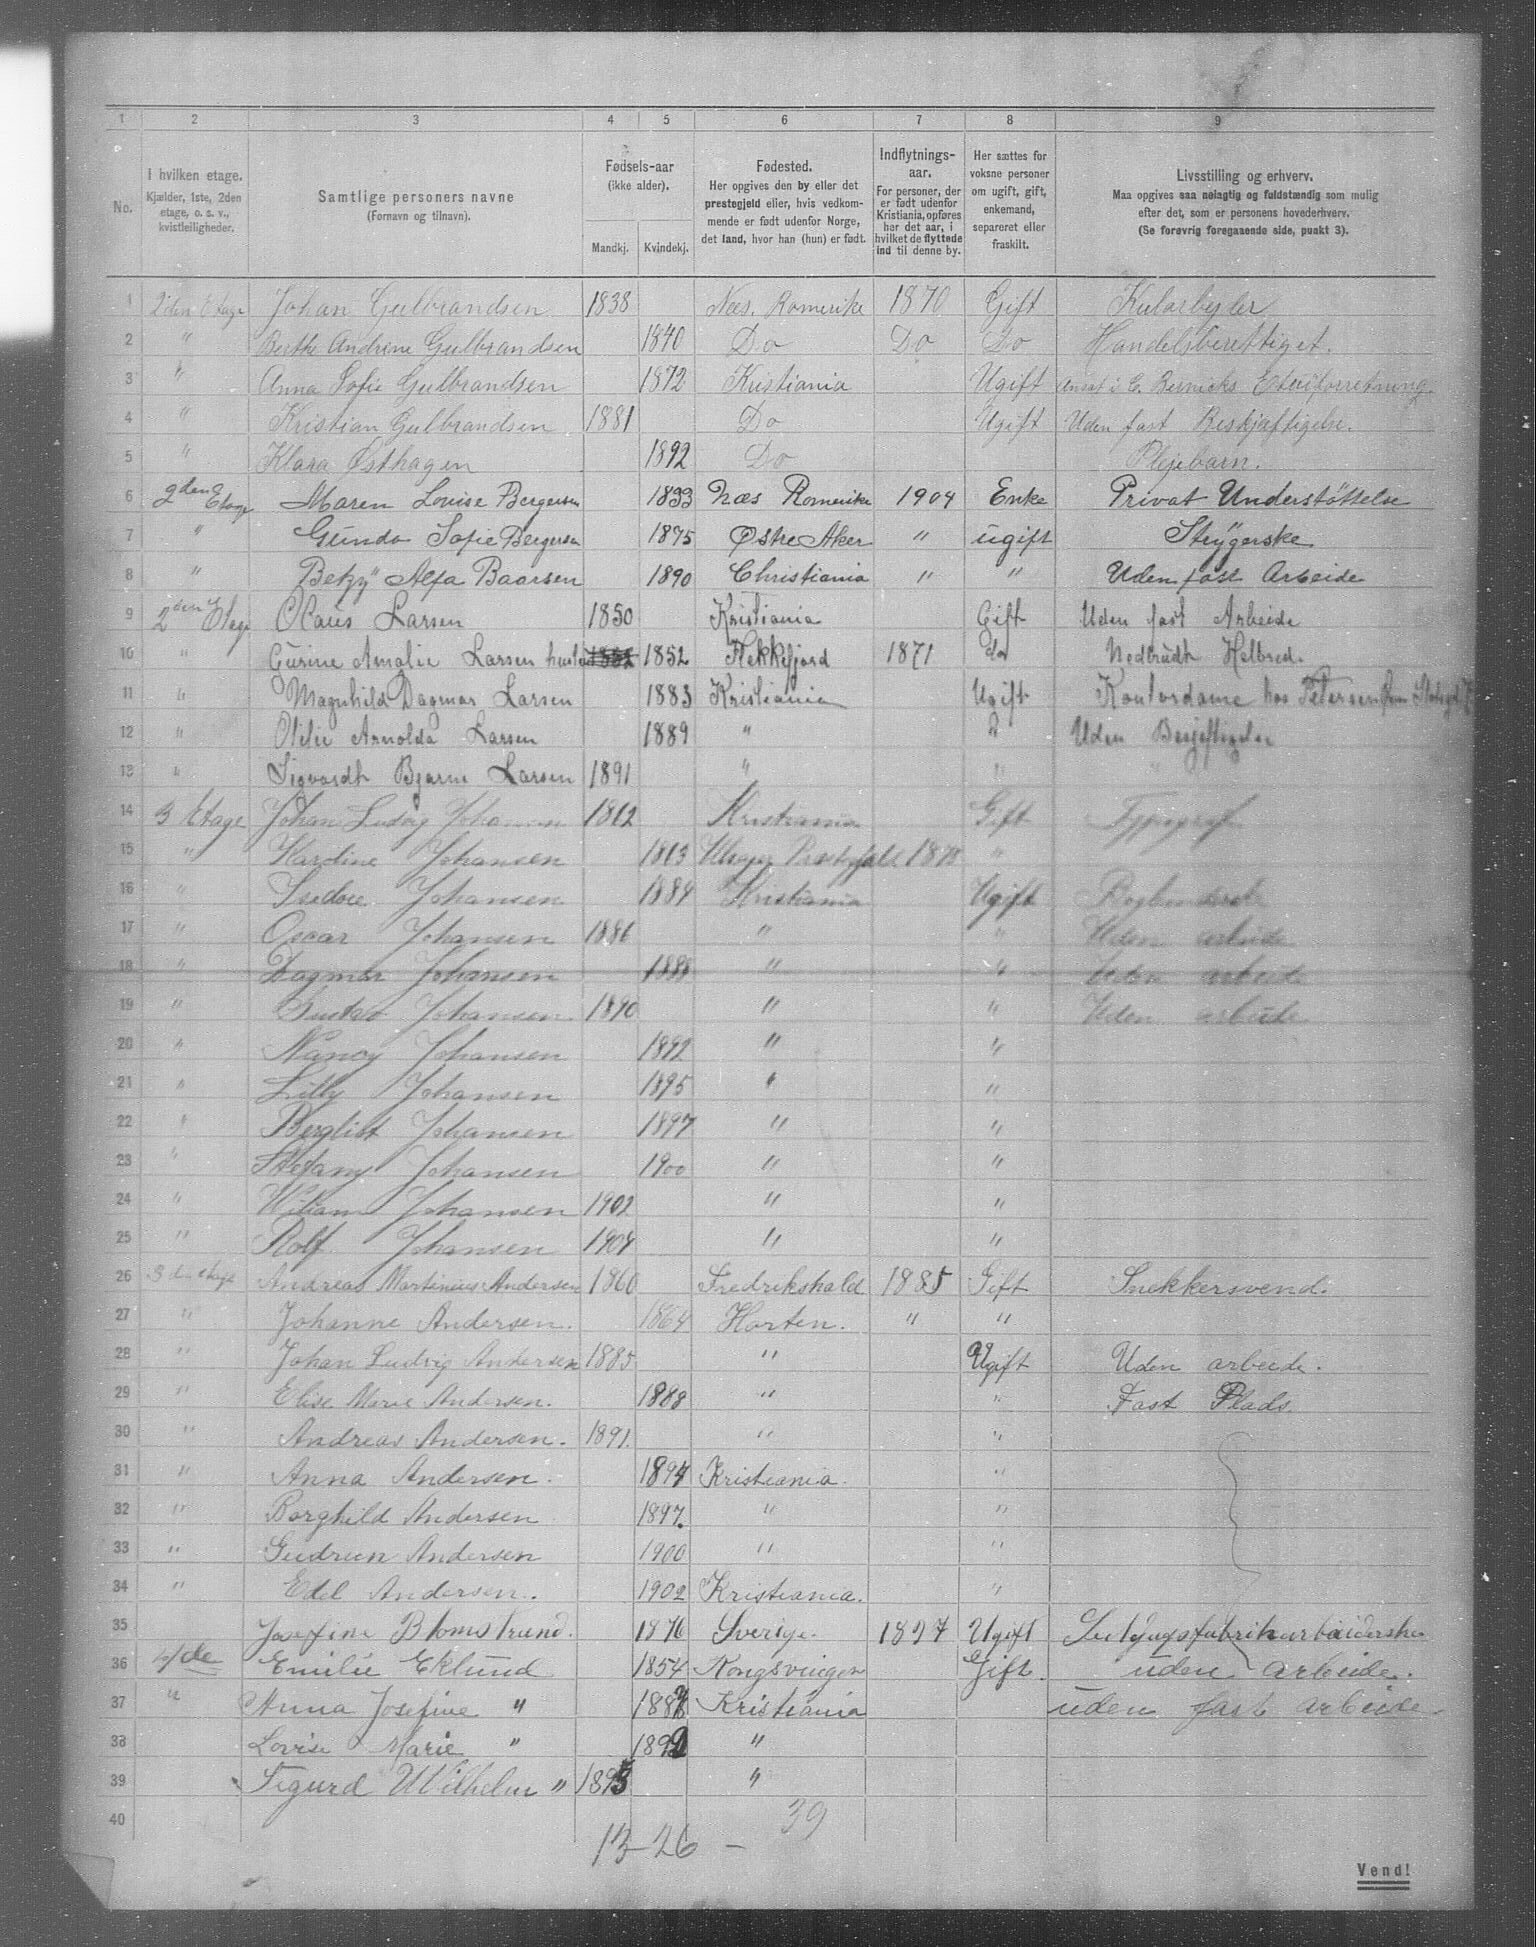 1 2 3 4 5 6 7 8 9
No.
I hvilken etage.
Kjælder, 1ste, 2den
etage, o. s. v.,
kvistleiligheder.
Samtlige personers navne
(Fornavn og tilnavn).
Fødsels-aar
(ikke alder).
Mandkj. Kvindekj.
Fødested.
Her opgives den by eller det
prestegjeld eller, hvis vedkom-
mende er født udenfor Norge,
det land, hvor han (hun) er født.
Indflytnings-
aar.
For personer, der
er født udenfor
Kristiania, opføres
her det aar, i
hvilket de flyttede
ind til denne by.
Her sættes for
voksne personer
om ugift, gift,
enkemand,
separeret eller
fraskilt.
Livsstilling og erhverv.
Maa opgives saa nøiagtig og fuldstændig som mulig
efter det, som er personens hovederhverv.
(Se forøvrig foregaaende side, punkt 3).
1 2den Etage Johan Gulbrandsen 1838 Næs. Romerike 1870 Gift
2 " Berthe Andrine Gulbrandsen 1840 Do Do Do Handelsberettiget.
3 " Anna Sofie Gulbrandsen 1872 Kristiania Ugift Ansat i C. Bernicks Etuiforretning.
4 " Kristian Gulbrandsen 1881 Do Ugift Uden fast Beskjæftigelse.
5 " Klara Østhagen 1892 Do Plejebarn.
6 2den Etage Maren Louise Bergersen 1833 Næs Romerike 1904 Enke Privat Understöttelse
7 " Gunda Sofie Bergersen 1875 Østre Aker " ugift Strygerske
8 " Betzy Alfa Baarsen 1890 Christiania " " Uden fast Arbeide
9 2den Etage Olaus Larsen 1850 Kristiania Gift Uden fast Arbeide
10 " Gurine Amalie Larsen hustru 1852 1852 Flekkefjord 1871 do Nedbrudt Helbred.
11 " Magnhild Dagmar Larsen 1883 Kristiania Ugift Kontordame hos Petersen
12 " Otilie Arnolda Larsen 1889 " " Uden
13 " Sigvardt Bjarne Larsen 1891 " "
14 3 Etage Johan Ludvig Johansen 1862 Kristiania Gift Typograf
15 " Kardine Johansen 1863 "
16 " Isedore Johansen 1884 Kristiania Ugift
17 " Oscar Johansen 1886 " " Uden arbeide
18 " Dagmar Johansen 1888 " " Uden arbeide
19 " Gustav Johansen 1890 " " Uden arbeide
20 " Nancy Johansen 1892 " "
21 " Lilly Johansen 1895 " "
22 " Bergliot Johansen 1897 " "
23 " Stefany Johansen 1900 " "
24 " Wiliam Johansen 1902 " "
25 " Rolf Johansen 1904 " "
26 3die etage Andreas Martinius Andersen 1860 Fredrikshald 1885 Gift Snekkersvend.
27 " Johanne Andersen. 1864 Horten. " "
28 " Johan Ludvig Andersen 1885 " Ugift Uden arbeide.
29 " Elise Marie Andersen. 1888 " " Fast Plads.
30 " Andreas Andersen. 1891. " "
31 " Anna Andersen. 1894 Kristiania. "
32 " Borghild Andersen 1897. " "
33 " Gudrun Andersen 1900 " "
34 " Edel Andersen. 1902 Kristiania. "
35 Josefine Blomstrund. 1876 Sverige. 1897 Ugift
36 4/de Emilie Eklund 1854 Kongsvinger Gift. uden arbeide.
37 " Anna Josefine " Kristiania uden fast arbeide
38 Lovise Marie " 1892 "
39 Sigurd Wilhelm " 1895 "
40
13-26 - 39
Vend!